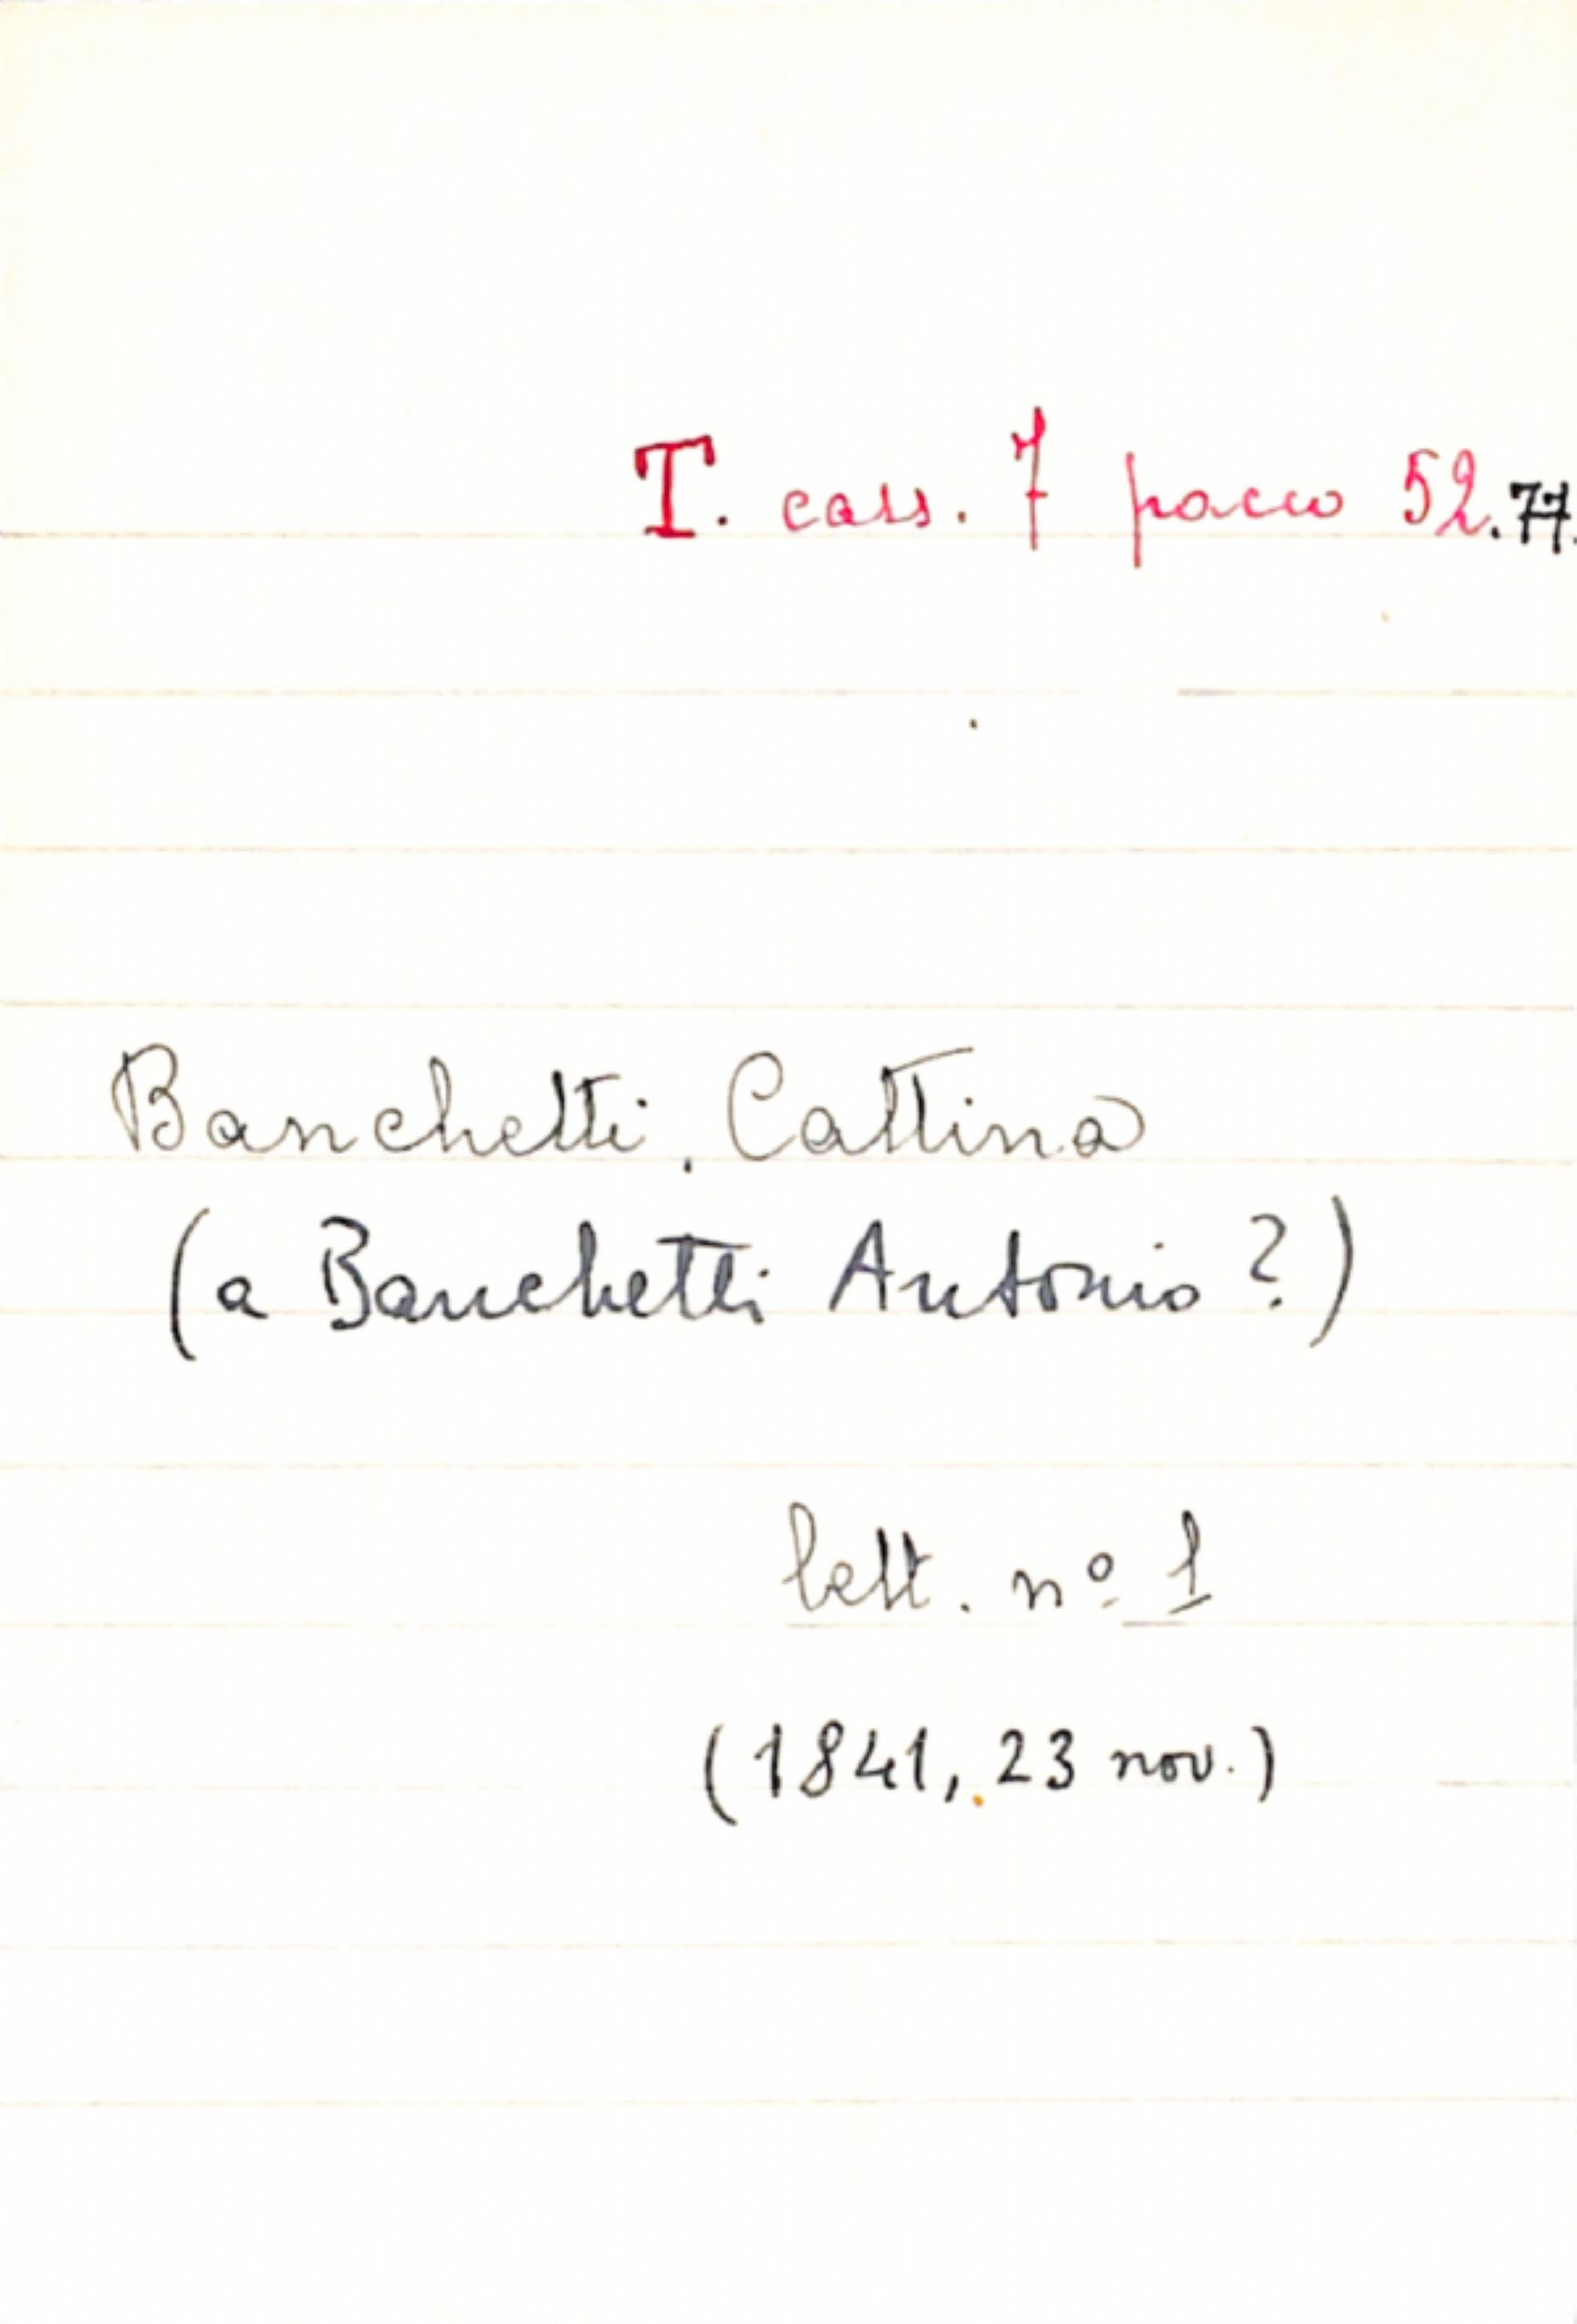 T. cass. 7 pacco 52.77.
Banchetti, Cattina
(a Banchetti Antonio?)
lett. nº 1
(1841, 23 nov.)